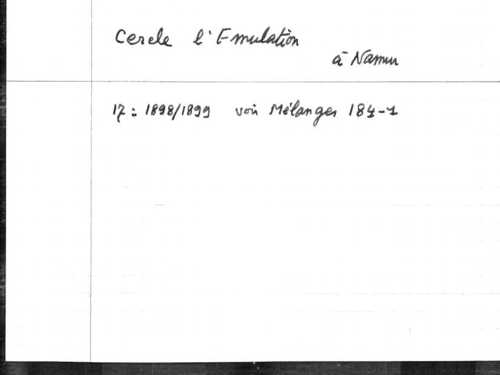 Cercle l'Emulation
à Namur
17 : 1898/1899 voir Mélanges 184-1